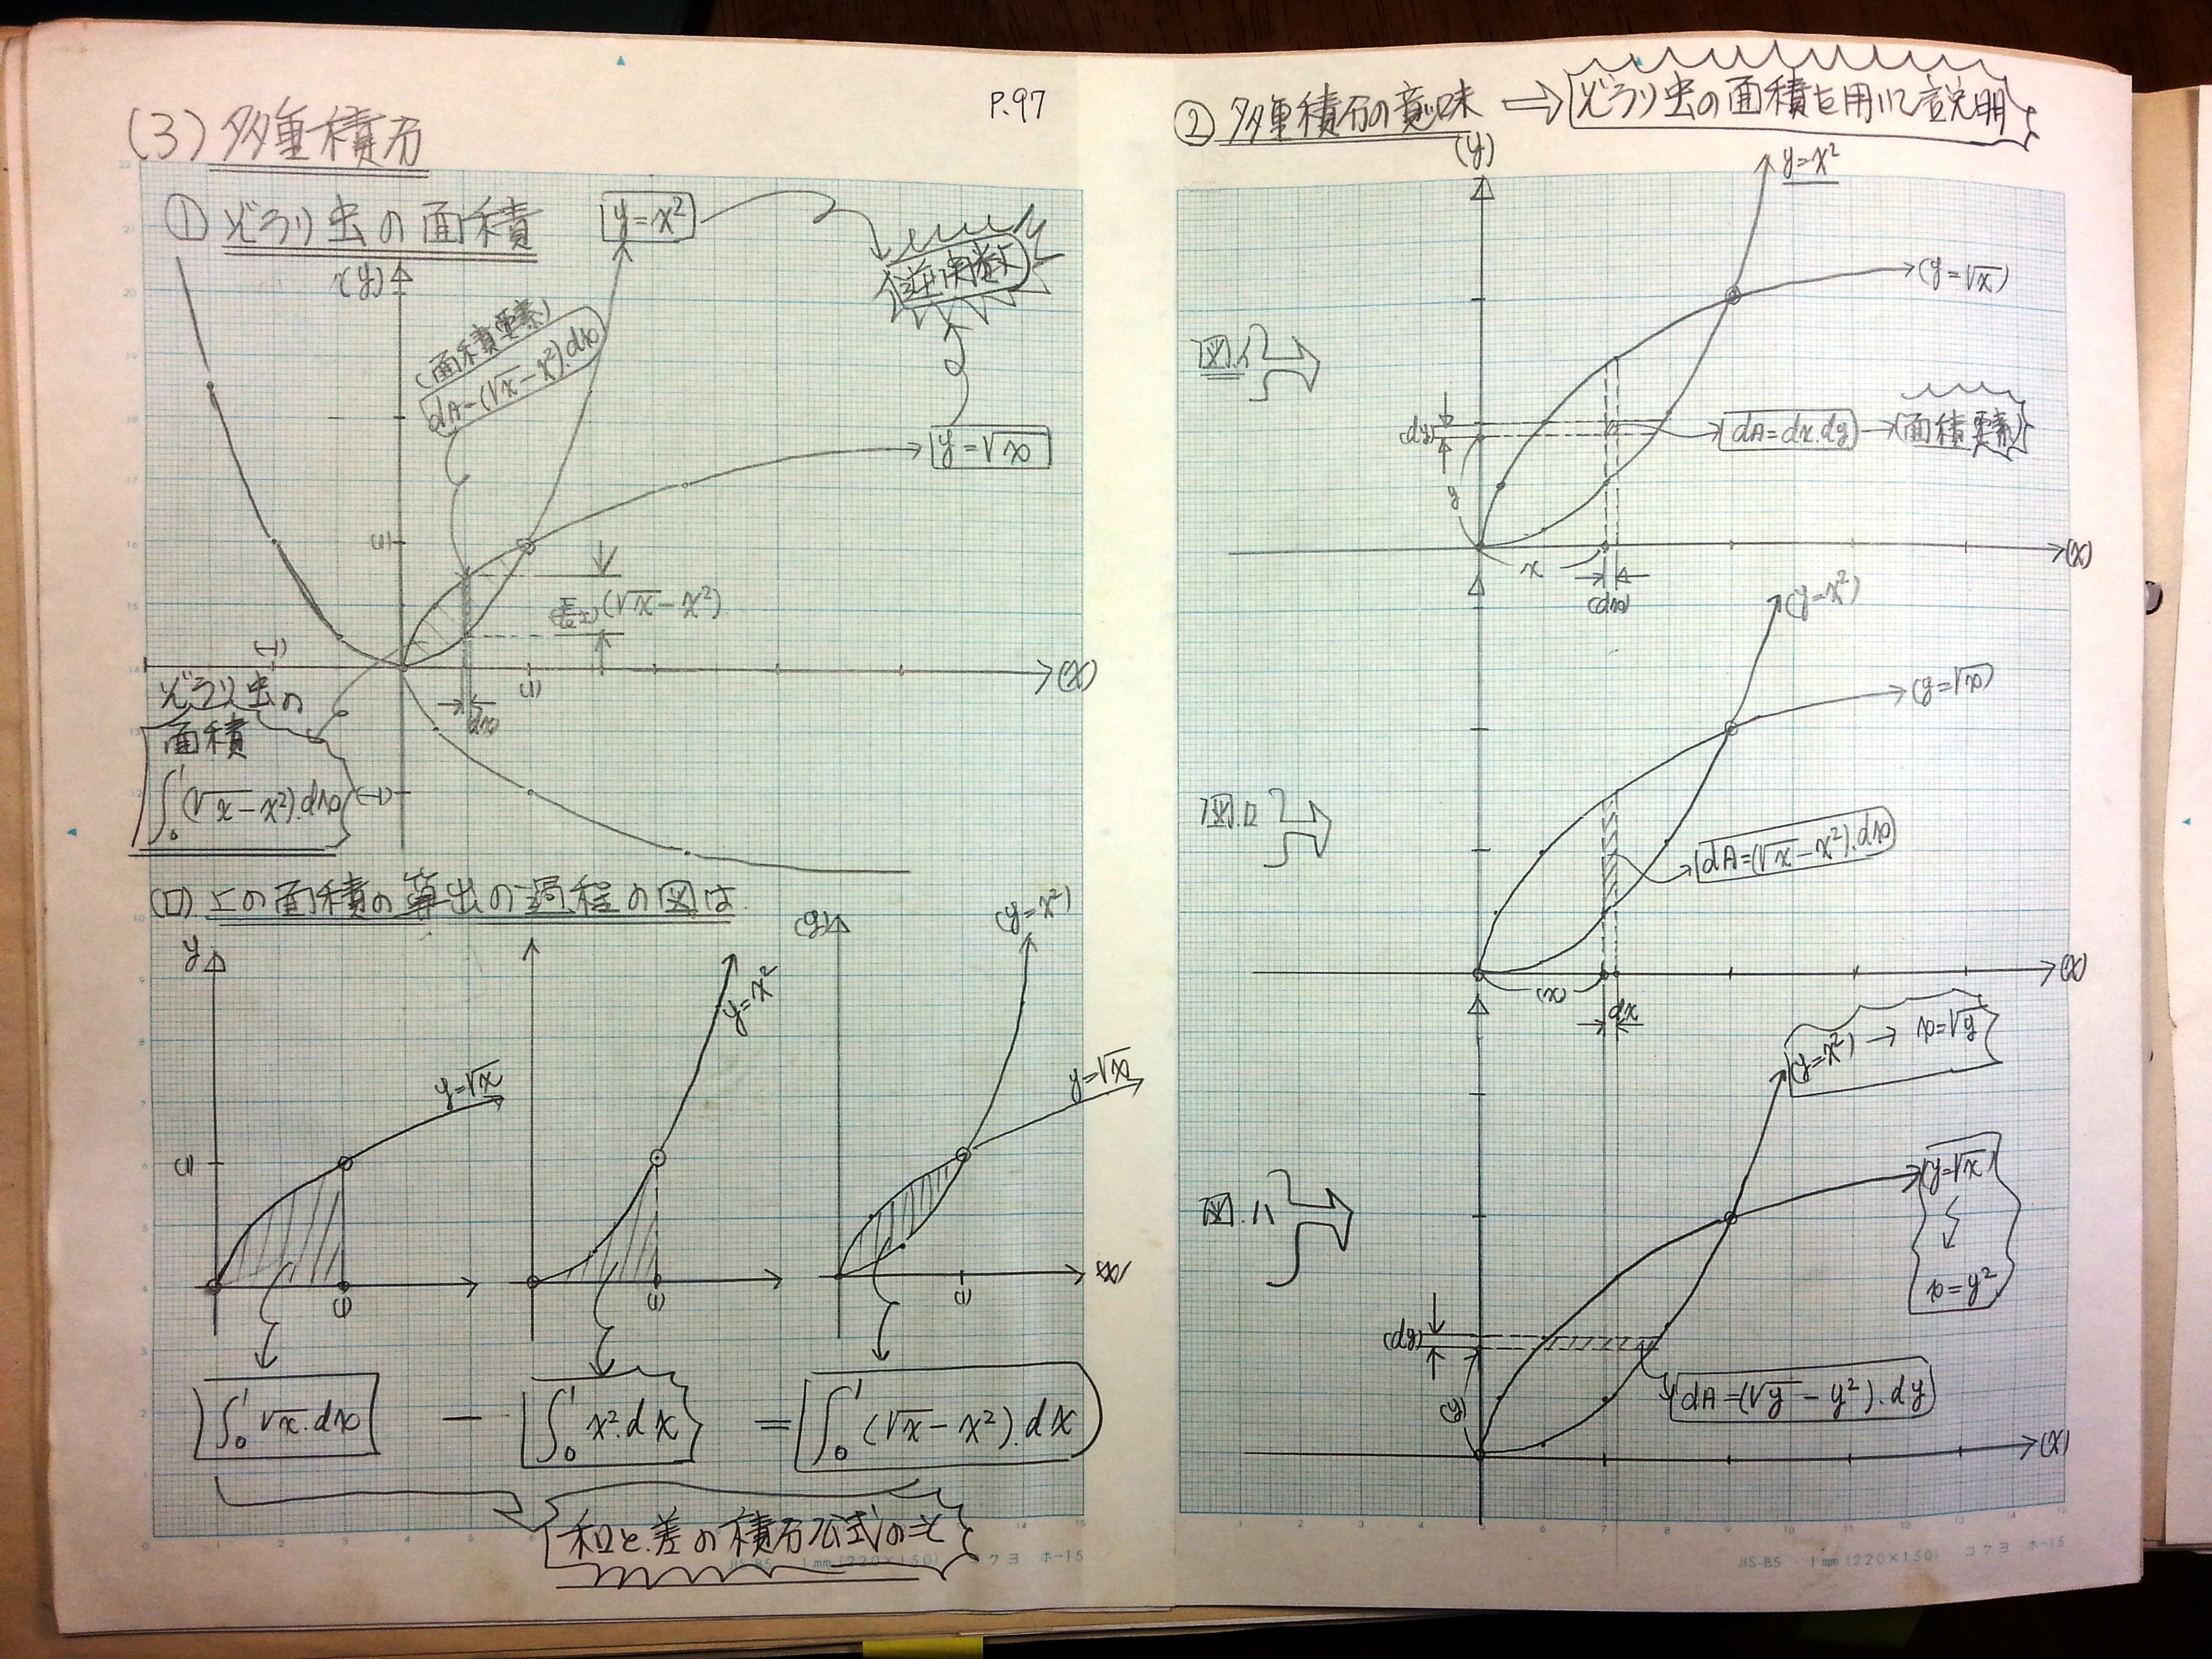 P.97
(3) 多重積分
① ぞうり虫の面積
y=x²
逆関数
(y)
(面積要素)
dA=(√x-x²).dx
y=√x
(1)
(長さ)(√x-x²)
(-1)
(1)
(x)
dx
ぞうり虫の
面積
∫₀¹(√x-x²).dx
(-1)
(ロ) 上の面積の算出の過程の図は
y
y=√x
(1)
(1)
y=x²
(1)
(y)
(y=x²)
y=√x
(1)
(x)
∫₀¹ √x.dx - ∫₀¹ x².dx = ∫₀¹ (√x-x²).dx
和と差の積分公式のこと
JIS-B5 1mm (220×150) コクヨ ホ-15
② 多重積分の意味 ⇒ ぞうり虫の面積を用いて説明
(y)
y=x²
(y=√x)
図.イ
(dy)
dA=dx.dy → 面積要素
y
x
(dx)
(x)
(y=x²)
(y=√x)
図.ロ
dA=(√x-x²).dx
(x)
dx
(x)
(y=x²) → x=√y
(y=√x)
↓
x=y²
図.ハ
(dy)
(y)
dA=(√y-y²).dy
(x)
JIS-B5 1mm (220×150) コクヨ ホ-15